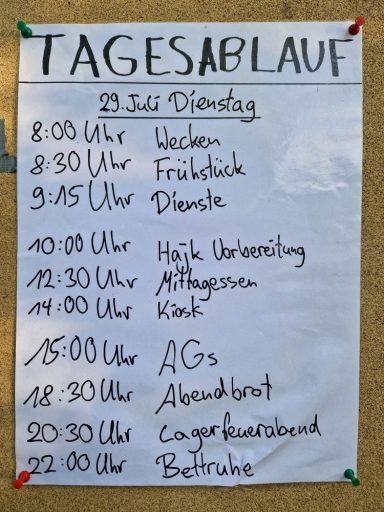 TAGESABLAUF
29. Juli Dienstag
8:00 Uhr Wecken
8:30 Uhr Frühstück
9:15 Uhr Dienste
10:00 Uhr Hajk Vorbereitung
12:30 Uhr Mittagessen
14:00 Uhr Kiosk
15:00 Uhr AGs
18:30 Uhr Abendbrot
20:30 Uhr Lagerfeuerabend
22:00 Uhr Bettruhe